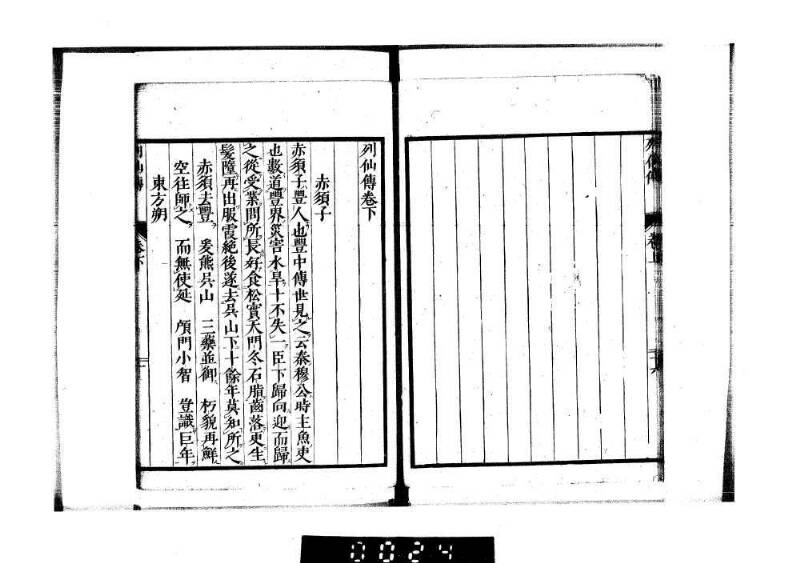 列仙傳卷下
赤須子
赤須子豐人也豐中傳世見之云秦穆公時主魚吏
也數道豐界災害水旱十不失一臣下歸向迎而歸
之從受業問所長好食松實天門冬石脂齒落更生
髮墮再出服霞絕後遂去吳山下十餘年莫知所之
赤須去豐 爰憩吳山 三藥並御 朽貌再鮮
空往師之 而無使延 顧門小智 豈識巨年
東方朔
列仙傳
卷下
列仙傳
卷上
0024